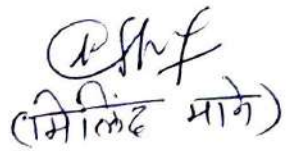 (मिलिंद माने)